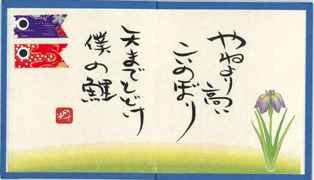 やねより高い
こいのぼり
天までとどけ
僕の鯉